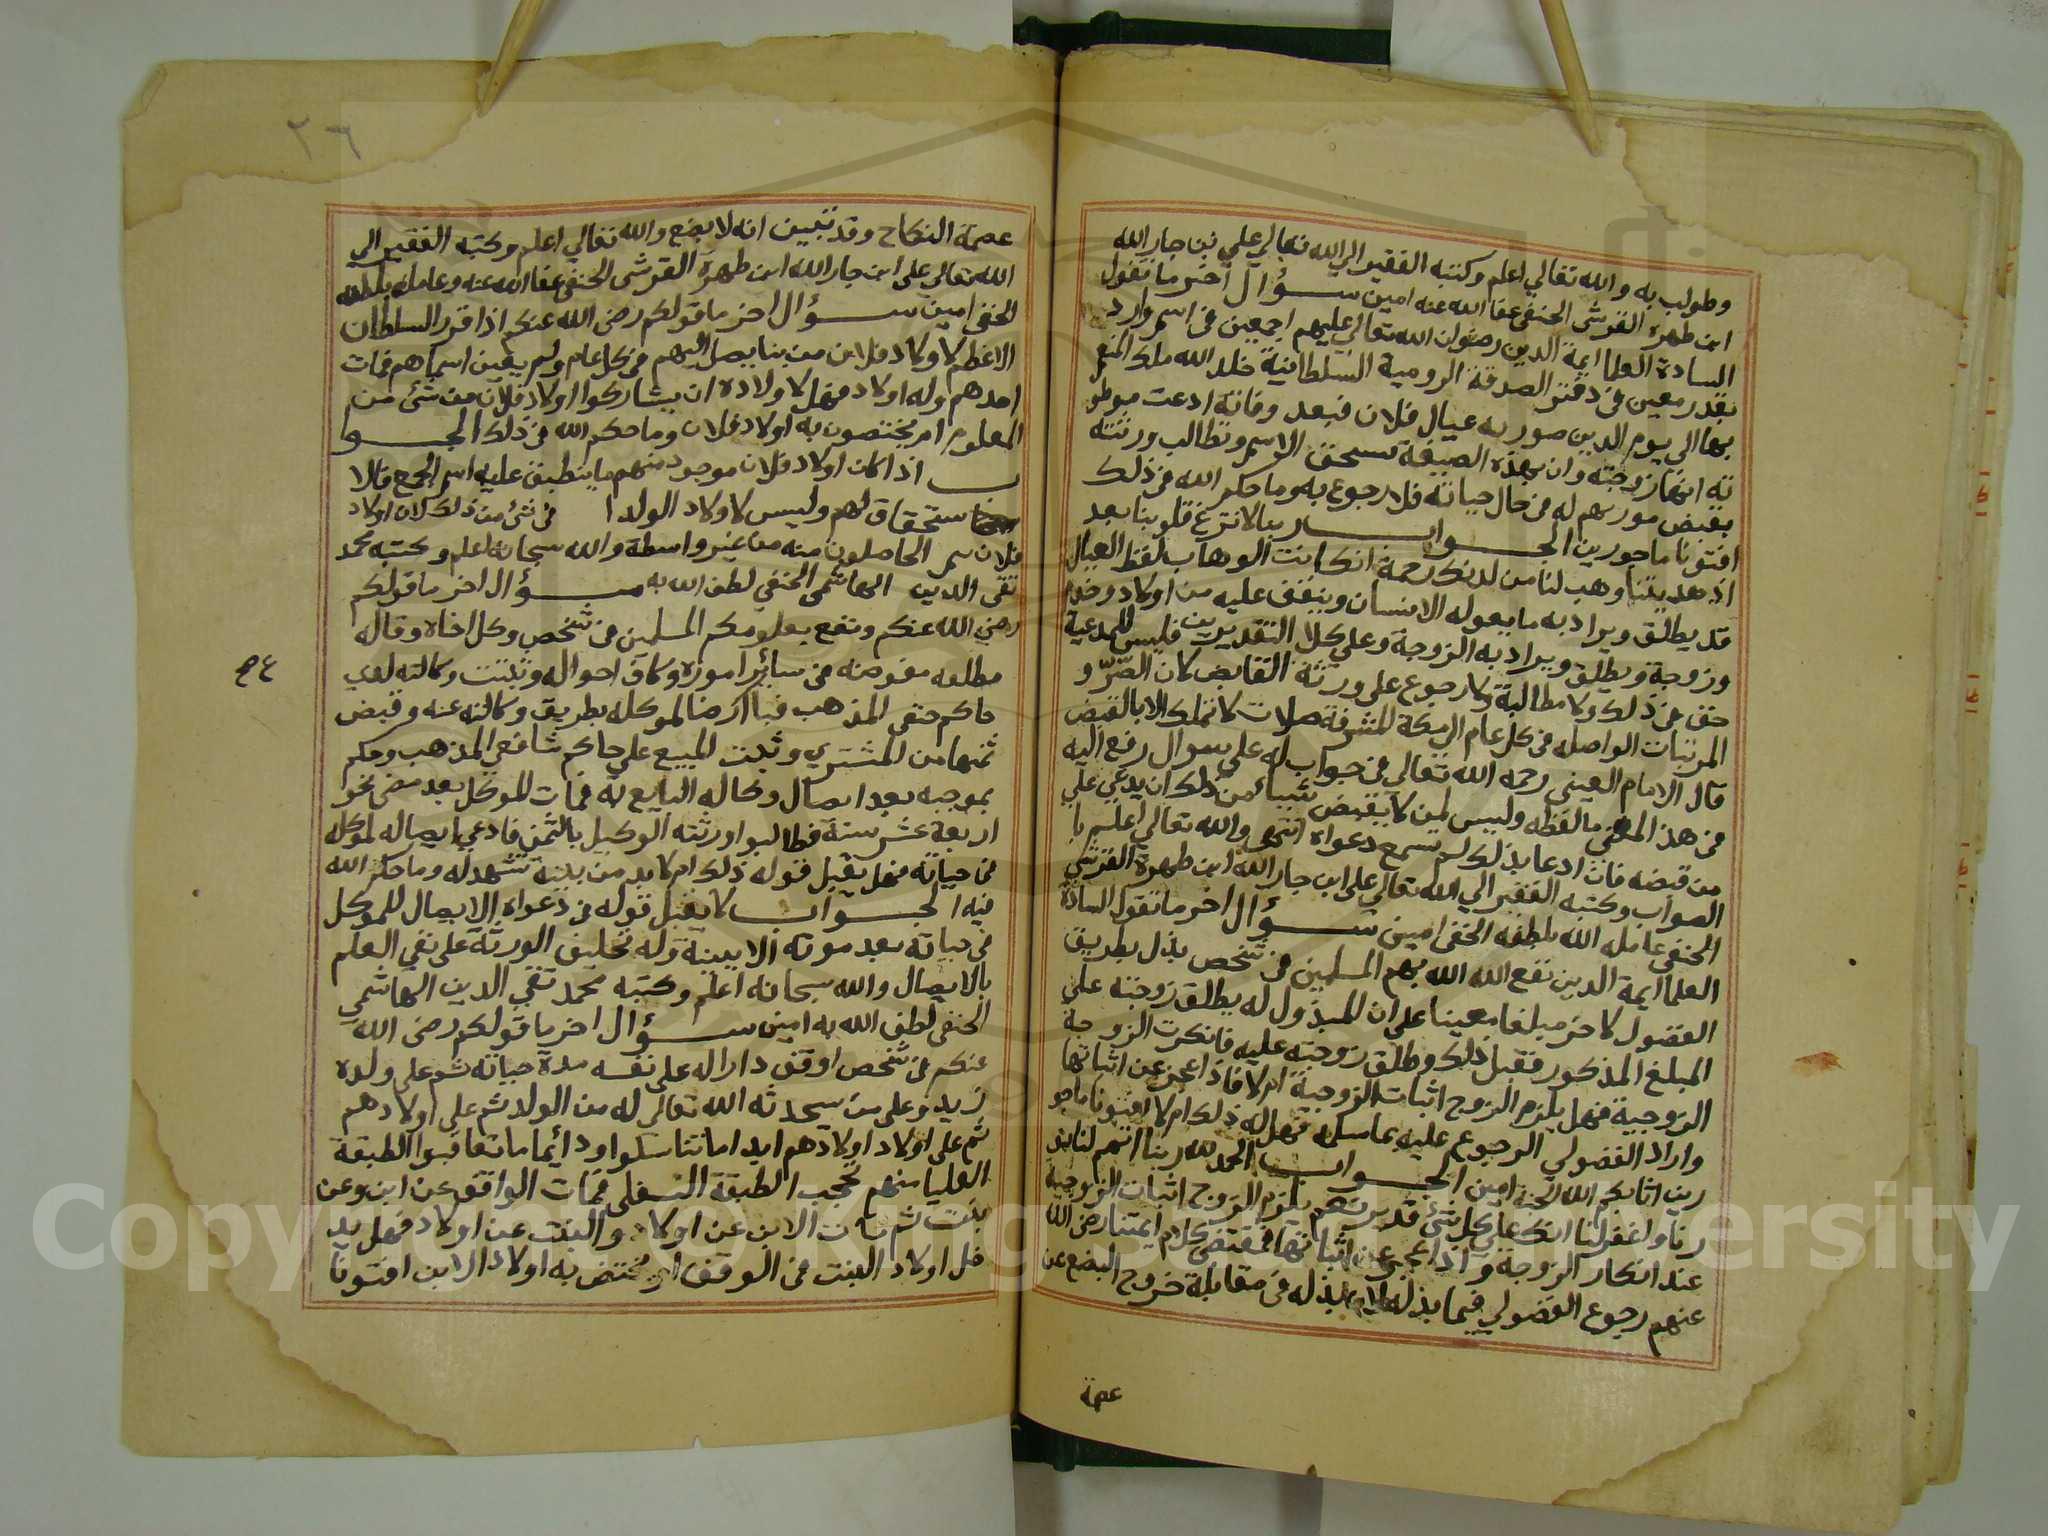 وطولب به والله تعالي اعلم وكتبه الفقير الي الله تعالي علي بن جار الله
ابن ظهيرة القرشي الحنفي عفا الله عنه امين سؤال اخر ما تقول
السادة العلما ايمة الدين رضوان الله تعالي عليهم اجمعين في اسم وارد
بقدر معين في دفتر الصدقة الرومية السلطانية خلد الله ملك المنعم
بها الي يوم الدين صورته عيال فلان فبعد وفاته ادعت موطو
ته انها زوجته وان بهذه الصيغة تستحق الاسم وتطالب ورثته
بقبض مورثهم له في حال حياته فلا رجوع به وما حكم الله في ذلك
افتونا ماجورين الجواب ربنا لا تزغ قلوبنا بعد
اذ هديتنا وهب لنا من لدنك رحمة انك انت الوهاب لفظ العيال
قد يطلق ويراد به ما يعوله الانسان وينفق عليه من اولاد وخدم
وزوجة ويطلق ويراد به الزوجة وعلي كلا التقديرين فليس للمدعية
حق في ذلك ولا مطالبة ولا رجوع علي ورثة القابض لان الصر و
المرتبات الواصله في كل عام الي مكة المشرفة صلات لا تملك الا بالقبض
قال الامام العيني رحمه الله تعالي في جواب له علي سوال رفع اليه
في هذا المعني ما لفظه وليس لمن لا يقبض شيبا من ذلك ان يدعي علي
من قبضه فان ادعا بذلك لم تسمع دعواه انتهى والله تعالي اعلم با
الصواب وكتبه الفقير الي الله تعالي علي ابن جار الله ابن ظهيرة القرشي
الحنفي عامله الله بلطفه الخفي امين سؤال اخر ما تقول السادة
العلما ايمة الدين نفع الله الله بهم المسلمين في شخص بذل بطريق
الفضول لاخر مبلغا معينا علي ان المبذول له يطلق زوجته علي
المبلغ المذكور فقبل ذلك وطلق زوجته عليه فانكرت الزوجة
الزوجية فهل يلزم الزوج اثبات الزوجية ام لا فاذا عجز عن اثباتها
واراد الفضولي الرجوع عليه بما سلمه فهل له ذلك ام لا افتونا ماجو
رين اثابكم الله الجنة امين الجواب الحمد لله ربنا اتمم لنا نو
رنا واغفر لنا انك علي كل شئ قدير نعم يلزم الزوج اثبات الزوجية
عند انكار الزوجة واذا عجز عن اثباتها فمقتضى كلام ايمتنا رضي الله
عنهم رجوع الفضولي فيما بذله لانه بذله في مقابلة خروج البضع عن
عصمة
٢٦
عصمة النكاح وقد تبين انه لا بضع والله تعالي اعلم وكتبه الفقير الي
الله تعالي علي ابن جار الله ابن ظهيرة القرشي الحنفي عفا الله عنه وعامله بلطفه
الخفي امين سؤال اخر ما قولكم رضي الله عنكم اذا قرر السلطان
الاعظم لاولاد فلان من بنا يصل اليهم في كل عام ولم يعين اسماهم فمات
احدهم وله اولاد فهل لاولاده ان يشاركوا اولاد فلان من شئ من
المعلوم ام يختصون به اولاد فلان وما حكم الله في ذلك الجوا
ب اذا كان اولاد فلان موجود منهم ما ينطبق عليه اسم الجمع فالا
ستحقاق لهم وليس لاولاد الولد ا في شئ من ذلك لان اولاد
فلان سم الحاصلون منه من غير واسطة والله سبحانه اعلم وكتبه محمد
تقي الدين الهاشمي الحنفي لطف الله به سؤال اخر ما قولكم
رضي الله عنكم ونفع بعلومكم المسلمين في شخص وكل اخاه وقاله
مطلقه مفوضه في سائر اموره وكافة احواله وثبتت وكالته لدي
حاكم حنفي المذهب فباع ارضا لموكله بطريق وكالته عنه وقبض
ثمنها من المشتري وثبت المبيع علي حاكم شافعي المذهب وحكم
بموجبه بعد اتصال وكاله البايع له فمات الموكل بعد مضي نحو
اربعة عشر سنة فطالبوا ورثته الوكيل بالثمن فادعي ايصاله لموكله
في حياته فهل يقبل قوله ذلك ام لابد من بينة تشهد له وما حكم الله
فيه الجواب لا يقبل قوله في دعواه الايصال للموكل
في حياته بعد موته الا ببينة وله تحليف الورثة علي نفي العلم
بالايصال والله سبحانه اعلم وكتبه محمد تقي الدين الهاشمي
الحنفي لطف الله به امين سؤال اخر ما قولكم رضي الله
عنكم في شخص اوقف دارا له علي نفسه مدة حياته ثم علي ولده
زيد وعلي من سيحدثه الله تعالي له من الولد ثم علي اولادهم
ثم علي اولاد اولادهم ابدا ما تناسلوا ودائما ما تعاقبوا الطبقة
العليا منهم تحجب الطبقة السفلي فمات الواقف عن ابن وعن
بنت ثم مات الابن عن اولاد والبنت عن اولاد فهل يد
خل اولاد البنت في الوقف او يختص به اولاد الابن افتونا